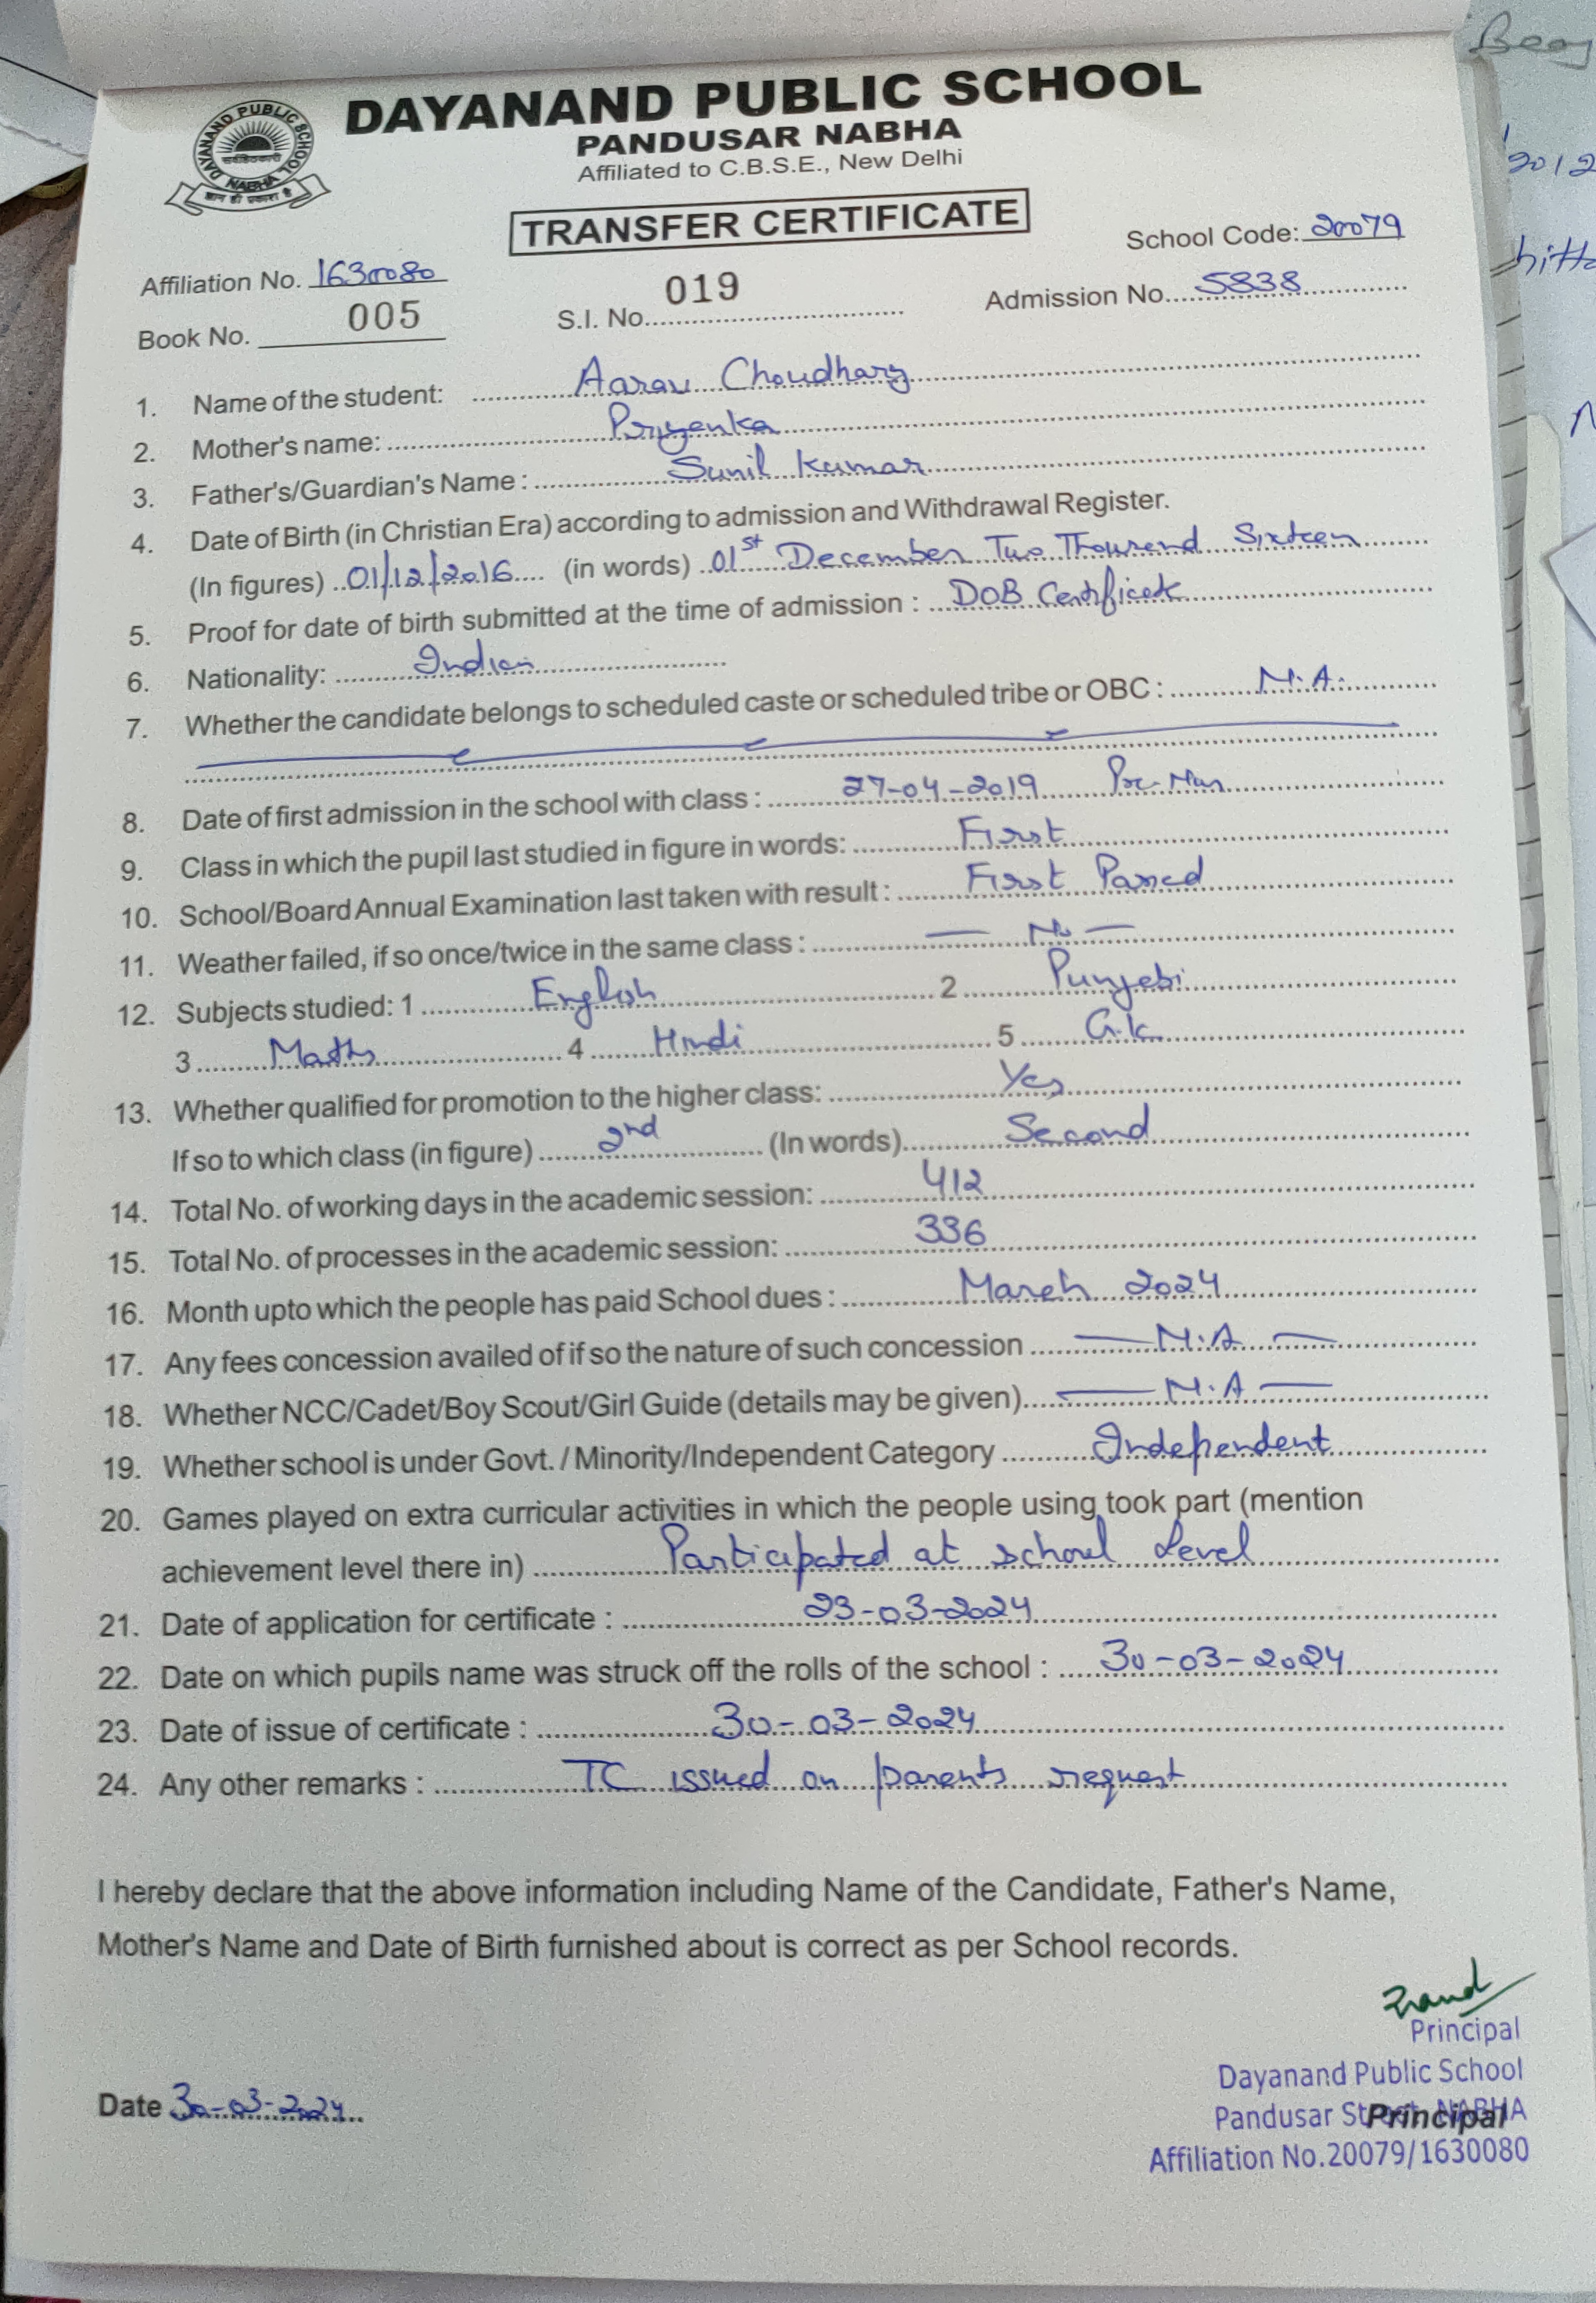 DAYANAND PUBLIC SCHOOL
PANDUSAR NABHA
Affiliated to C.B.S.E., New Delhi
DAYANAND PUBLIC SCHOOL
NABHA
TRANSFER CERTIFICATE
School Code: 20079
Affiliation No. 1630080
Book No. 005
S.I. No. 019
Admission No. 5838
1. Name of the student: Aarav Choudhary
2. Mother's name: Priyenka
3. Father's/Guardian's Name : Sunil Kumar
4. Date of Birth (in Christian Era) according to admission and Withdrawal Register.
(In figures) 01/12/2016 (in words) 01st December Two Thousand Sixteen
5. Proof for date of birth submitted at the time of admission : DOB Certificate
6. Nationality: Indian
7. Whether the candidate belongs to scheduled caste or scheduled tribe or OBC : N.A.
8. Date of first admission in the school with class : 27-04-2019 Pre-Nur
9. Class in which the pupil last studied in figure in words: First
10. School/Board Annual Examination last taken with result : First Passed
11. Weather failed, if so once/twice in the same class : — No —
12. Subjects studied: 1 English 2 Punjabi
3 Maths 4 Hindi 5 G.k
13. Whether qualified for promotion to the higher class: Yes
If so to which class (in figure) 2nd (In words) Second
14. Total No. of working days in the academic session: 412
15. Total No. of processes in the academic session: 336
16. Month upto which the people has paid School dues : March 2024
17. Any fees concession availed of if so the nature of such concession — N.A —
18. Whether NCC/Cadet/Boy Scout/Girl Guide (details may be given) — N.A —
19. Whether school is under Govt. / Minority/Independent Category Independent
20. Games played on extra curricular activities in which the people using took part (mention
achievement level there in) Participated at school Level
21. Date of application for certificate : 23-03-2024
22. Date on which pupils name was struck off the rolls of the school : 30-03-2024
23. Date of issue of certificate : 30-03-2024
24. Any other remarks : TC issued on parents request
I hereby declare that the above information including Name of the Candidate, Father's Name,
Mother's Name and Date of Birth furnished about is correct as per School records.
Principal
Dayanand Public School
Pandusar Street, NABHA
Principal
Affiliation No.20079/1630080
Date 30-03-2024
2012